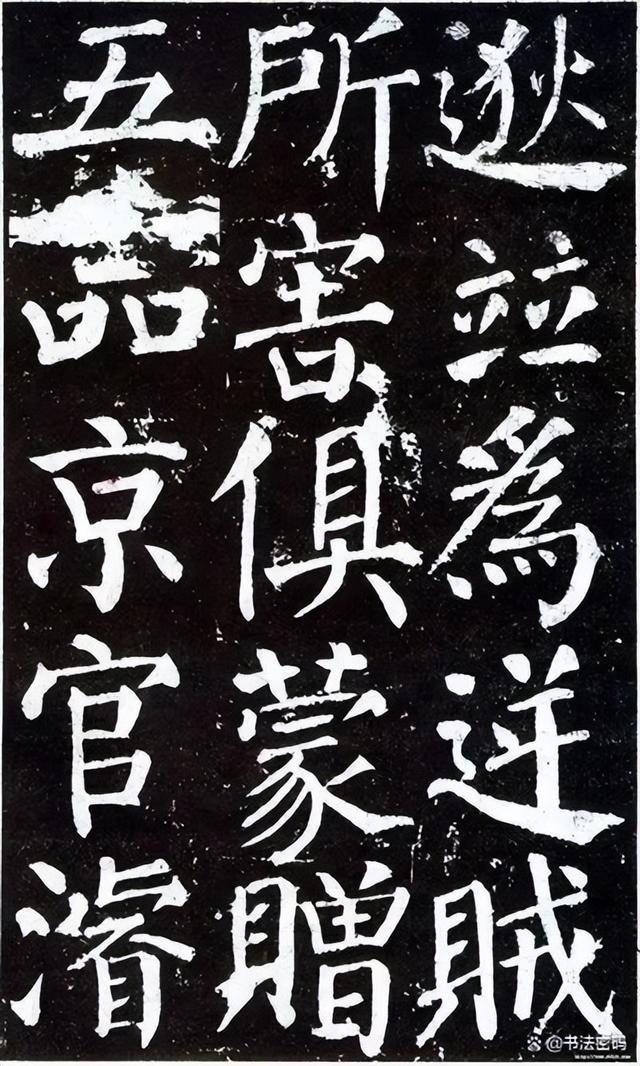 逖並為逆賊
所害俱蒙贈
五品京官濬
@书法密码